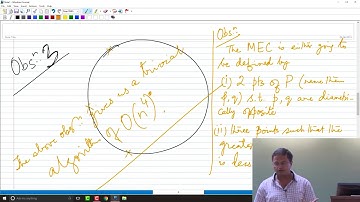 Obsⁿ 3
The above obsⁿ gives us a trivial
algorithm of O(n⁴).
Obsⁿ:
The MEC is either going to
be defined by
(i) 2 pts of P (name them
p, q) s.t. p, q are diametri-
cally opposite
(ii) three points such that the
greatest
is less